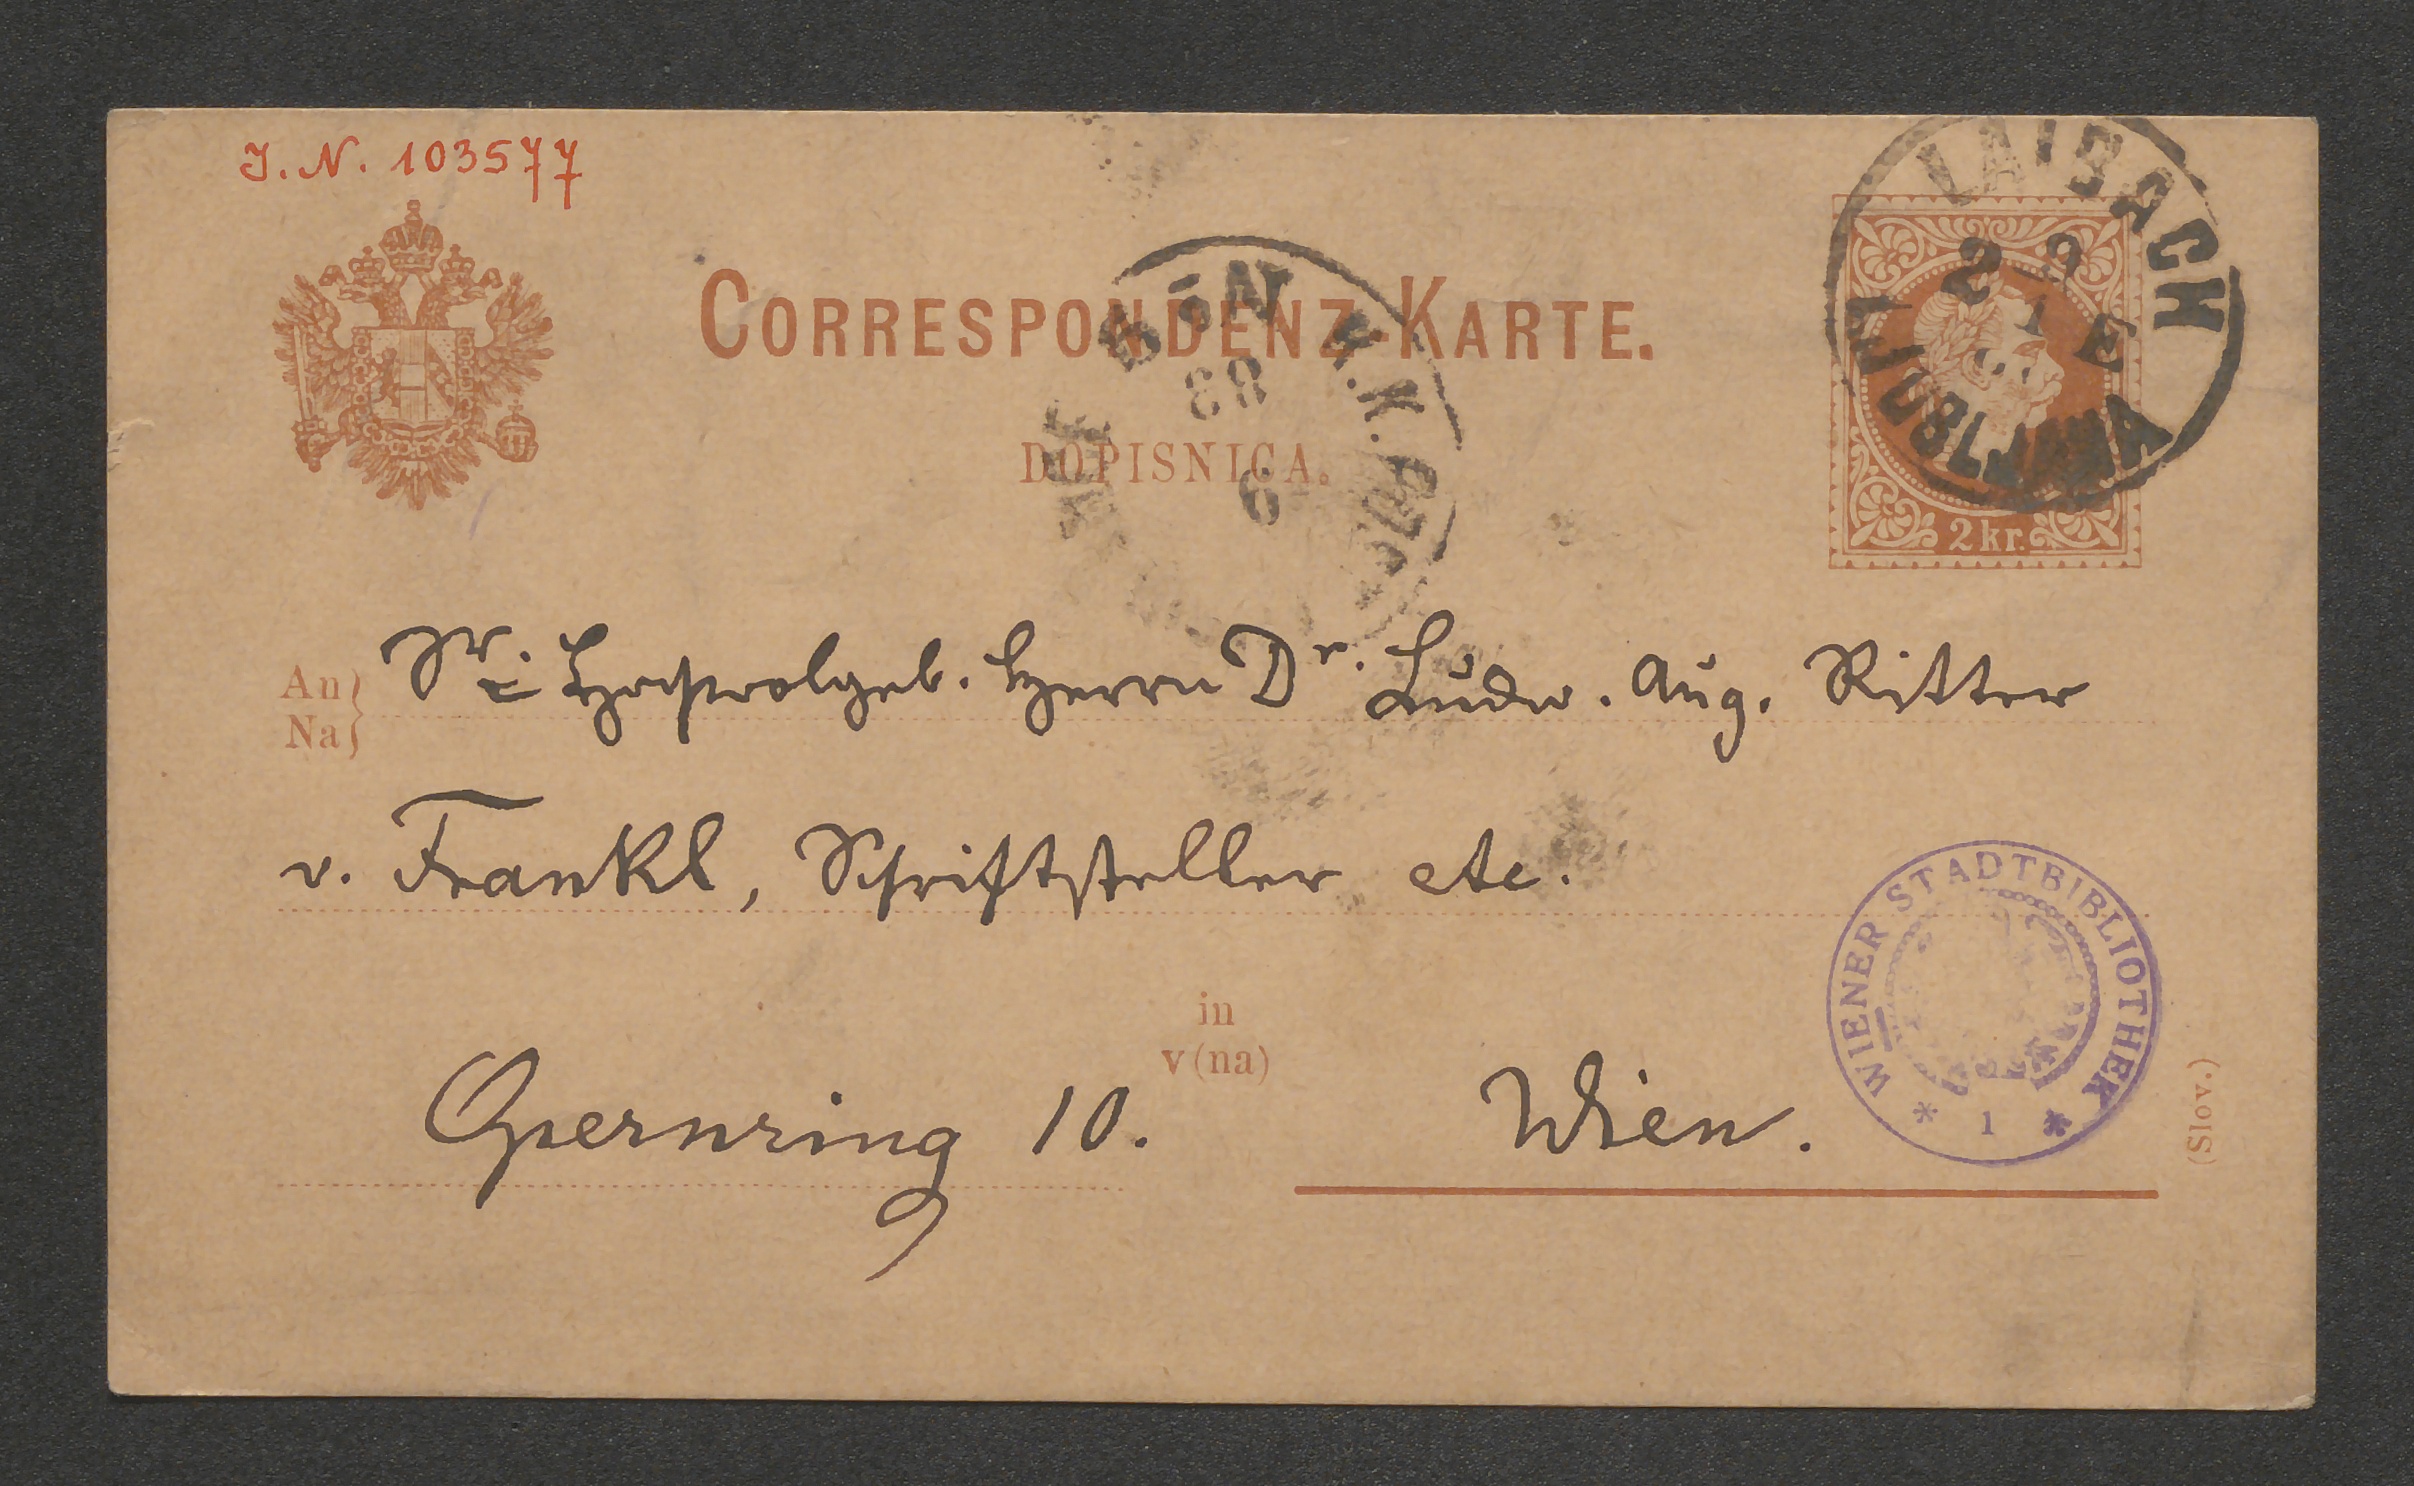 J. N. 103577
LAIBACH
LJUBLJANA
CORRESPONDENZ-KARTE.
DOPISNICA.
2 kr.
An
Na
Sr. Hochwolgeb. Herrn Dr. Ludw. Aug. Ritter
v. Frankl, Schriftsteller etc.
in
v (na)
Opernring 10. Wien.
WIENER STADTBIBLIOTHEK
* 1 *
(Slov.)